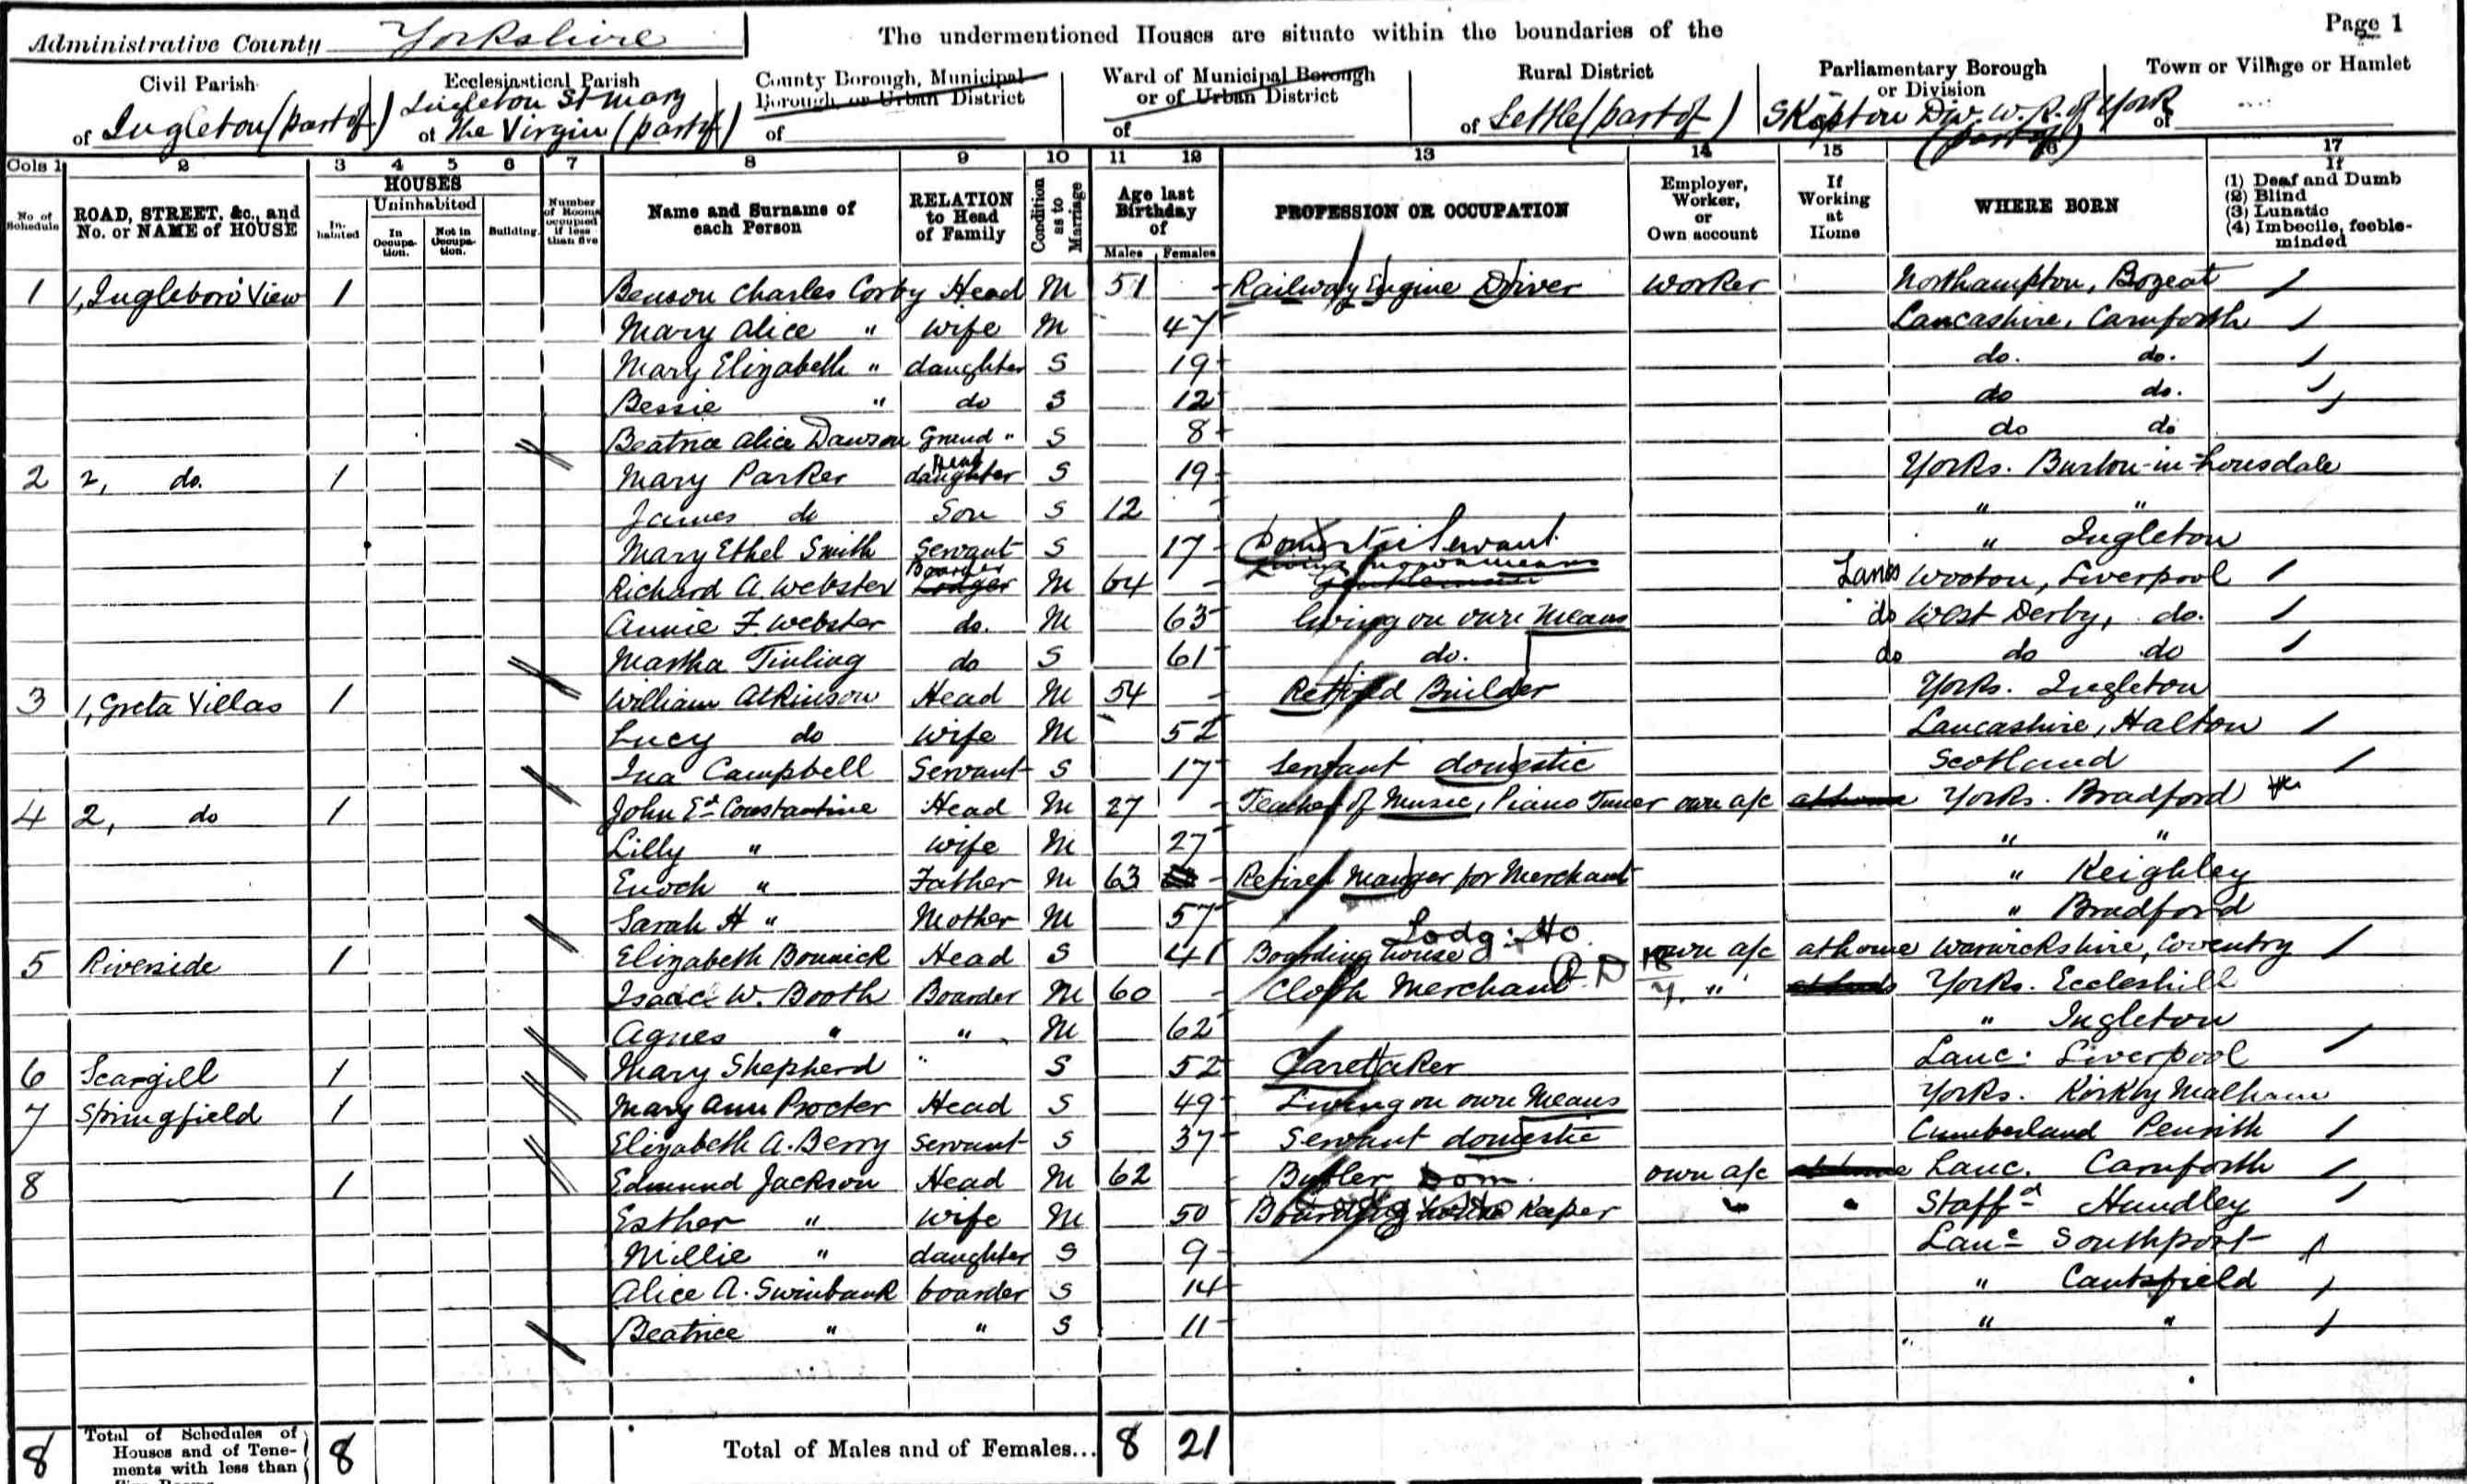 Page 1
Administrative County Yorkshire The undermentioned Houses are situate within the boundaries of the
Civil Parish Ecclesiastical Parish County Borough, Municipal Borough or Urban District Ward of Municipal Borough or of Urban District Rural District Parliamentary Borough or Division Town or Village or Hamlet
of Ingleton (part of) Ingleton St Mary of The Virgin (part of) of of of Settle (part of) Skipton Div. W. R. of York (part of) of
Cols 1 2 3 4 5 6 7 8 9 10 11 12 13 14 15 16 17
No of Schedule ROAD, STREET, &c., and No. or NAME of HOUSE HOUSES Inhabited Uninhabited In Occupation. Not in Occupation. Building. Number of Rooms occupied if less than five Name and Surname of each Person RELATION to Head of Family Condition as to Marriage Age last Birthday of Males Females PROFESSION OR OCCUPATION Employer, Worker, or Own account If Working at Home WHERE BORN If (1) Deaf and Dumb (2) Blind (3) Lunatic (4) Imbecile, feeble-minded
1 1, Ingleboro' View 1 Benson Charles Corby Head M 51 Railway Engine Driver Worker Northampton, Bozeat
Mary Alice " Wife M 47 Lancashire, Carnforth
Mary Elizabeth " daughter S 19 do. do.
Bessie " do S 12 do do.
Beatrice Alice Dawson Grand " S 8 do do
2 2, do. 1 Mary Parker Head daughter S 19 Yorks. Burton-in-Lonsdale
James do Son S 12 " "
Mary Ethel Smith Servant S 17 Domestic Servant " Ingleton
Richard A. Webster Boarder Lodger M 64 Living on own means Gentleman Lancs Wooton, Liverpool
Annie F. Webster do. M 63 living on own means do West Derby, do.
Martha Tinling do S 61 do. do do do
3 1, Greta Villas 1 William Atkinson Head M 54 Retired Builder Yorks. Ingleton
Lucy do Wife M 52 Lancashire, Halton
Ina Campbell Servant S 17 Servant domestic Scotland
4 2, do 1 John Ed Constantine Head M 27 Teacher of Music, Piano Tuner own a/c at home Yorks. Bradford
Lilly " Wife M 27 " "
Enoch " Father M 63 Retired Manger for Merchant " Keighley
Sarah H " Mother M 57 " Bradford
5 Riverside 1 Elizabeth Bonnick Head S 41 Boarding house Lodg: Ho. own a/c at home Warwickshire, Coventry
Isaac W. Booth Boarder M 60 Cloth Merchant " Yorks. Eccleshill
Agnes " " M 62 " Ingleton
6 Scargill 1 Mary Shepherd " S 52 Caretaker Lanc: Liverpool
7 Springfield 1 Mary Ann Procter Head S 49 Living on own Means Yorks. Kirkby Malham
Elizabeth A. Berry Servant S 37 Servant domestic Cumberland Penrith
8 1 Edmund Jackson Head M 62 Butler Dom. own a/c at home Lanc. Carnforth
Esther " Wife M 50 Boarding house Keeper " " Staffd Hundley
Millie " daughter S 9 Lanc Southport
Alice A. Swinbank boarder S 14 " Cantsfield
Beatrice " " S 11 " "
8 Total of Schedules of Houses and of Tenements with less than 8 Total of Males and of Females... 8 21